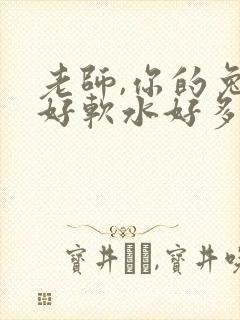 老師,你的兔
好軟水好多
寶井
,寶井